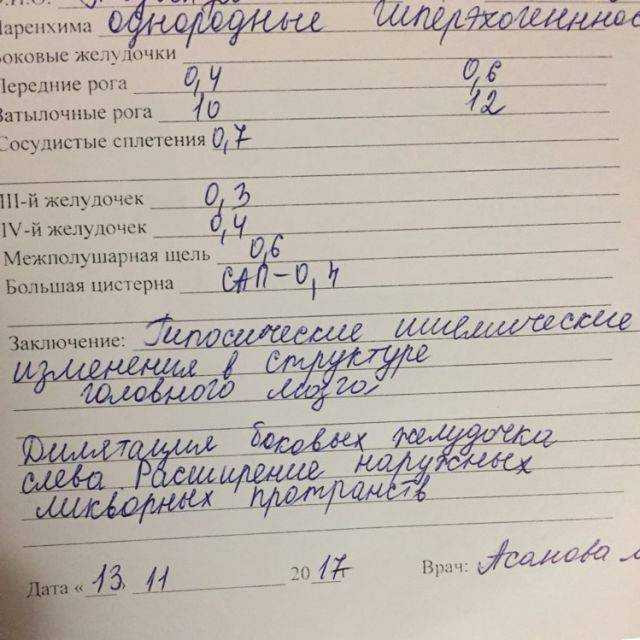 Паренхима однородные гиперэхогеннос
Боковые желудочки
Передние рога 0,4 0,6
Затылочные рога 10 12
Сосудистые сплетения 0,7
III-й желудочек 0,3
IV-й желудочек 0,4
Межполушарная щель 0,6
Большая цистерна САП-0,4
Заключение: Гипоксические ишемические
изменения в структуре
головного мозга
Дилятация боковых желудочка
слева Расширение наружных
ликворных пространств
Дата « 13 » 11 2017 Врач: Асанова